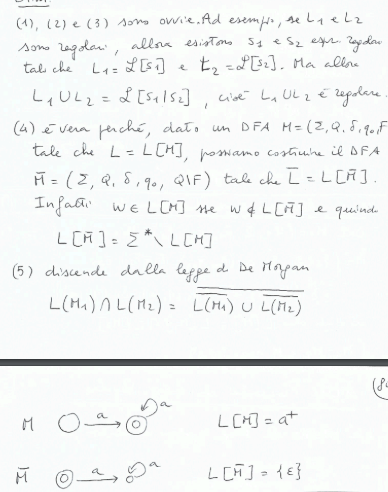 (1), (2) e (3) sono ovvie. Ad esempio, se L1 e L2
sono regolari, allora esistono S1 e S2 espr. regolari
tali che L1 = ℒ[S1] e L2 = ℒ[S2]. Ma allora
L1 ∪ L2 = ℒ[S1|S2], cioè L1 ∪ L2 è regolare.
(4) è vera perché, dato un DFA M = (Σ, Q, δ, q0, F
tale che L = L[M], possiamo costruire il DFA
M̄ = (Σ, Q, δ, q0, Q\F) tale che L̄ = L[M̄].
Infatti w ∈ L[M] sse w ∉ L[M̄] e quindi
L[M̄] = Σ* \ L[M]
(5) discende dalla legge di De Morgan
L(M1) ∩ L(M2) = \overline{\overline{L(M1)} ∪ \overline{L(M2)}}
(8
M a a L[M] = a⁺
M̄ a a L[M̄] = {ε}